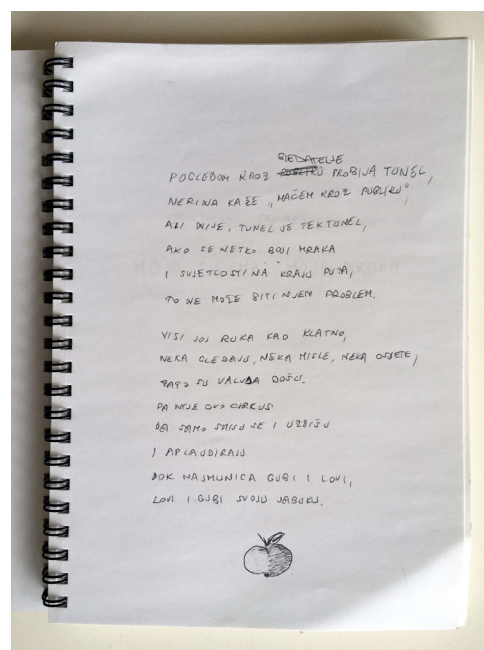 GLEDATELJE
POGLEDOM KROZ PUBLIKU PROBIJA TUNEL,
NERINA KAŽE "MAČEM KROZ PUBLIKU"
ALI NIJE, TUNEL JE TEK TUNEL,
AKO SE NETKO BOJI MRAKA
I SVJETLOSTI NA KRAJU PUTA,
TO NE MOŽE BITI NJEN PROBLEM.
VISI JOJ RUKA KAO KLATNO,
NEKA GLEDAJU, NEKA MISLE, NEKA OSJETE,
ZATO SU VALJDA DOŠLI.
PA NIJE OVO CIRKUS
DA SAMO SMIJU SE I UZDIŠU
I APLAUDIRAJU
DOK MAJMUNICA GUBI I LOVI,
LOVI I GUBI SVOJU JABUKU.